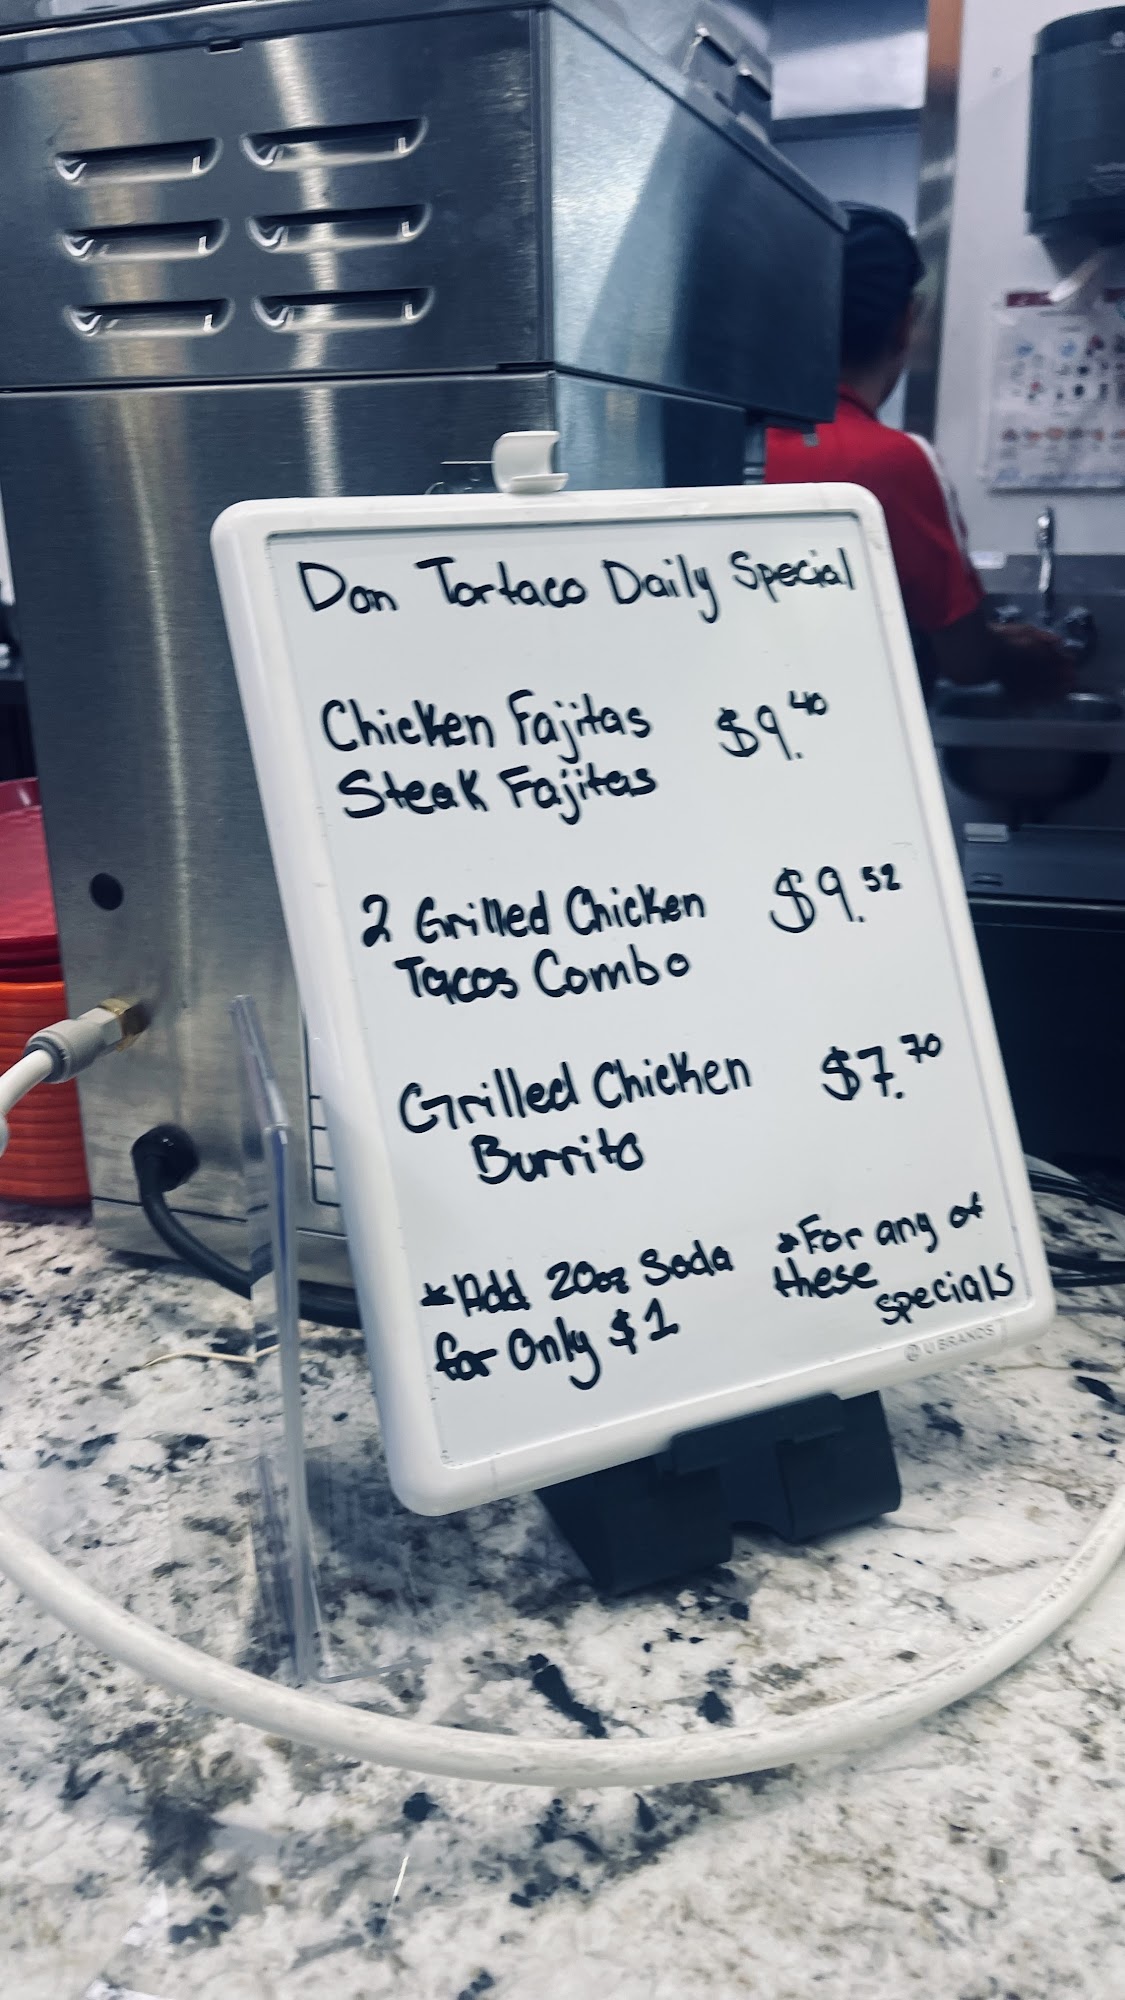 Don Tortaco Daily Special
Chicken Fajitas $9.40
Steak Fajitas
2 Grilled Chicken $9.52
Tacos Combo
Grilled Chicken $7.70
Burrito
*Add 20oz Soda
for Only $1
*For any of
these
specials
U BRANDS